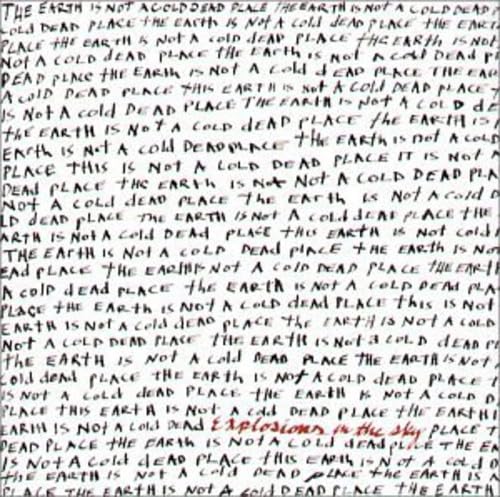 THE EARTH IS NOT A COLD DEAD PLACE THE EARTH IS NOT A COLD DEAD
COLD DEAD PLACE THE EARTH IS NOT A COLD DEAD PLACE THE EARTH
PLACE THE EARTH IS NOT A COLD DEAD PLACE THE EARTH IS NOT
NOT A COLD DEAD PLACE THE EARTH IS NOT A COLD DEAD P
DEAD PLACE THE EARTH IS NOT A COLD DEAD PLACE THE EA
A COLD DEAD PLACE THIS EARTH IS NOT A COLD DEAD PLACE
IS NOT A COLD DEAD PLACE THE EARTH IS NOT A COLD DE
THE EARTH IS NOT A COLD DEAD PLACE THE EARTH IS
EARTH IS NOT A COLD DEAD PLACE THE EARTH IS NOT A COLD
PLACE THIS IS NOT A COLD DEAD PLACE IT IS NOT
DEAD PLACE THE EARTH IS NOT NOT A COLD DEAD PLA
NOT A COLD DEAD PLACE THE EARTH IS NOT A COLD D
LD DEAD PLACE THE EARTH IS NOT A COLD DEAD PLACE THE
ARTH IS NOT A COLD DEAD PLACE THIS EARTH IS NOT COLD
THE EARTH IS NOT A COLD DEAD PLACE THE EARTH IS NO
EAD PLACE THE EARTH IS NOT A COLD DEAD PLACE THE EARTH
A COLD DEAD PLACE THE EARTH IS NOT A COLD DEAD PLA
PLACE THE EARTH IS NOT A COLD DEAD PLACE THIS IS NOT
EARTH IS NOT A COLD DEAD PLACE THE EARTH IS NOT A COLD
NOT A COLD DEAD PLACE THE EARTH IS NOT A COLD DEAD P
THE EARTH IS NOT A COLD DEAD PLACE THE EARTH IS NOT
COLD DEAD PLACE THE EARTH IS NOT A COLD DEAD PLACE T
IS NOT A COLD DEAD PLACE THE EARTH IS NOT A COLD D
PLACE THIS EARTH IS NOT A COLD DEAD PLACE THE EARTH
EARTH IS NOT A COLD DEAD Explosions in the sky PLACE T
DEAD PLACE THE EARTH IS NOT A COLD DEAD PLACE THE EA
IS NOT A COLD DEAD PLACE THIS EARTH IS NOT A COLD D
THE EARTH IS NOT A COLD DEAD PLACE THE EARTH IS
PLACE THE EARTH IS NOT A COLD DEAD PLACE THE EARTH